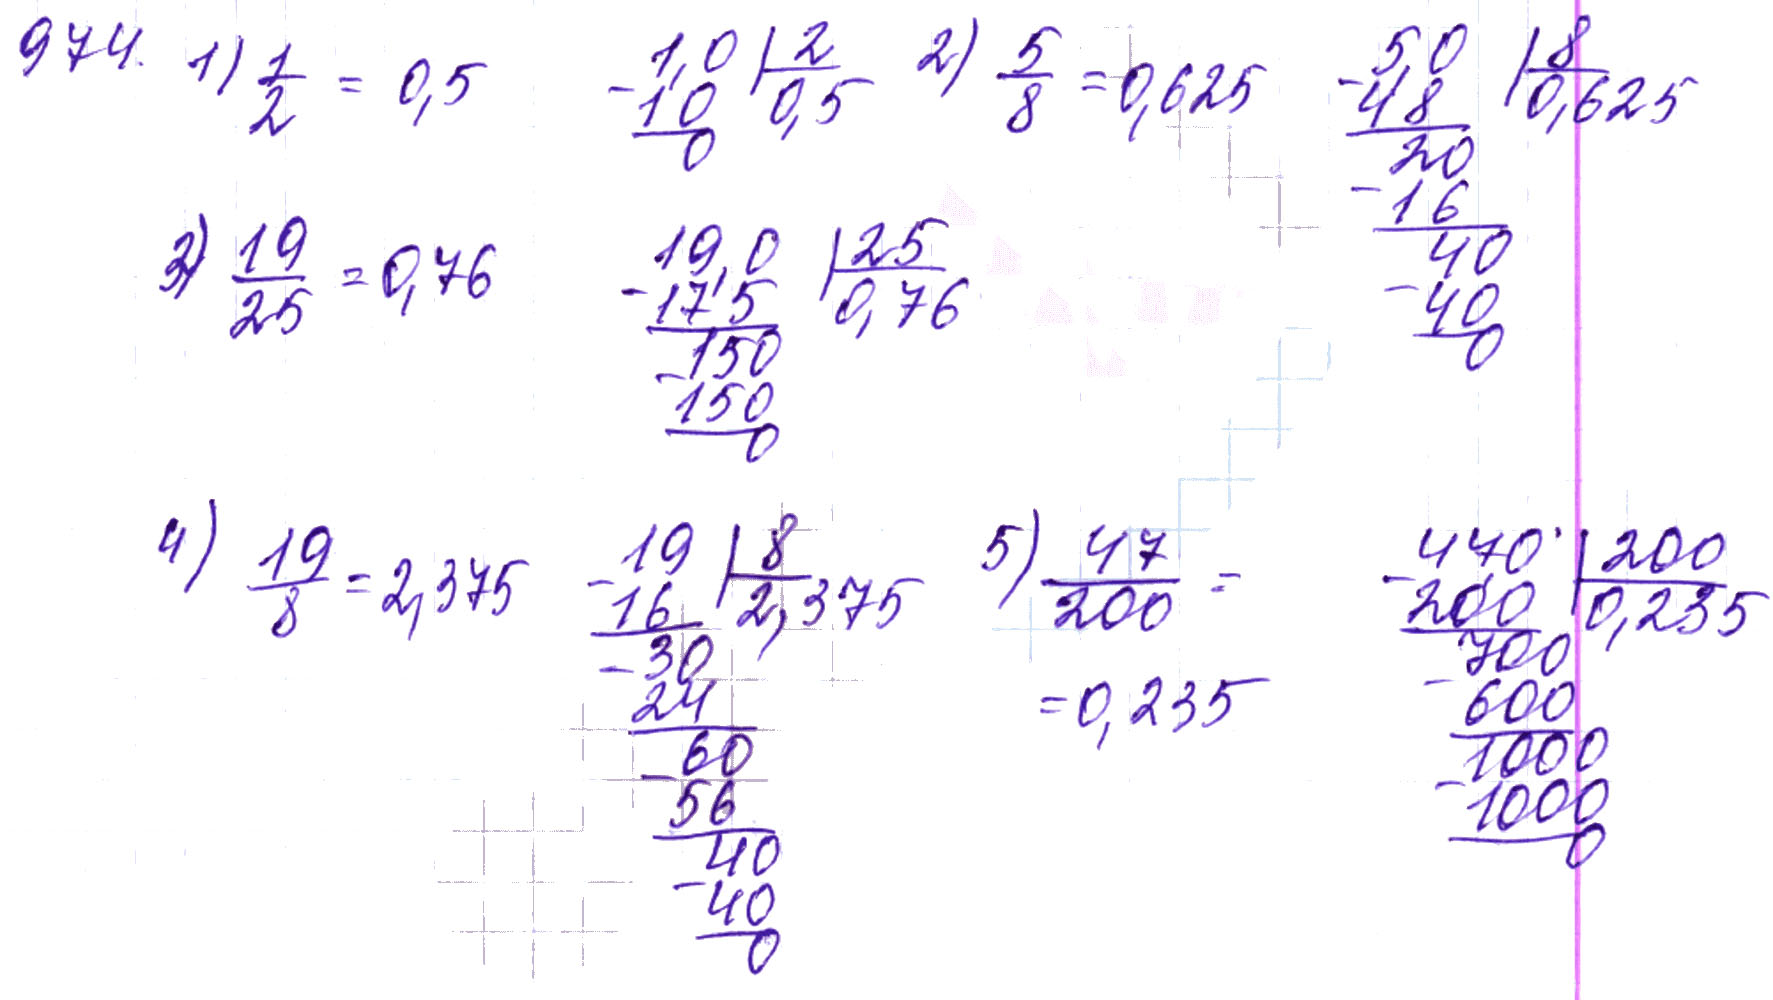 974. 1) 1/2 = 0,5
1,0 | 2
- 10 0,5
0
2) 5/8 = 0,625
5,0 | 8
- 48 0,625
20
- 16
40
- 40
0
3) 19/25 = 0,76
19,0 | 25
- 175 0,76
150
- 150
0
4) 19/8 = 2,375
19 | 8
- 16 2,375
30
- 24
60
- 56
40
- 40
0
5) 47/200 =
= 0,235
470 | 200
- 200 0,235
700
- 600
1000
- 1000
0